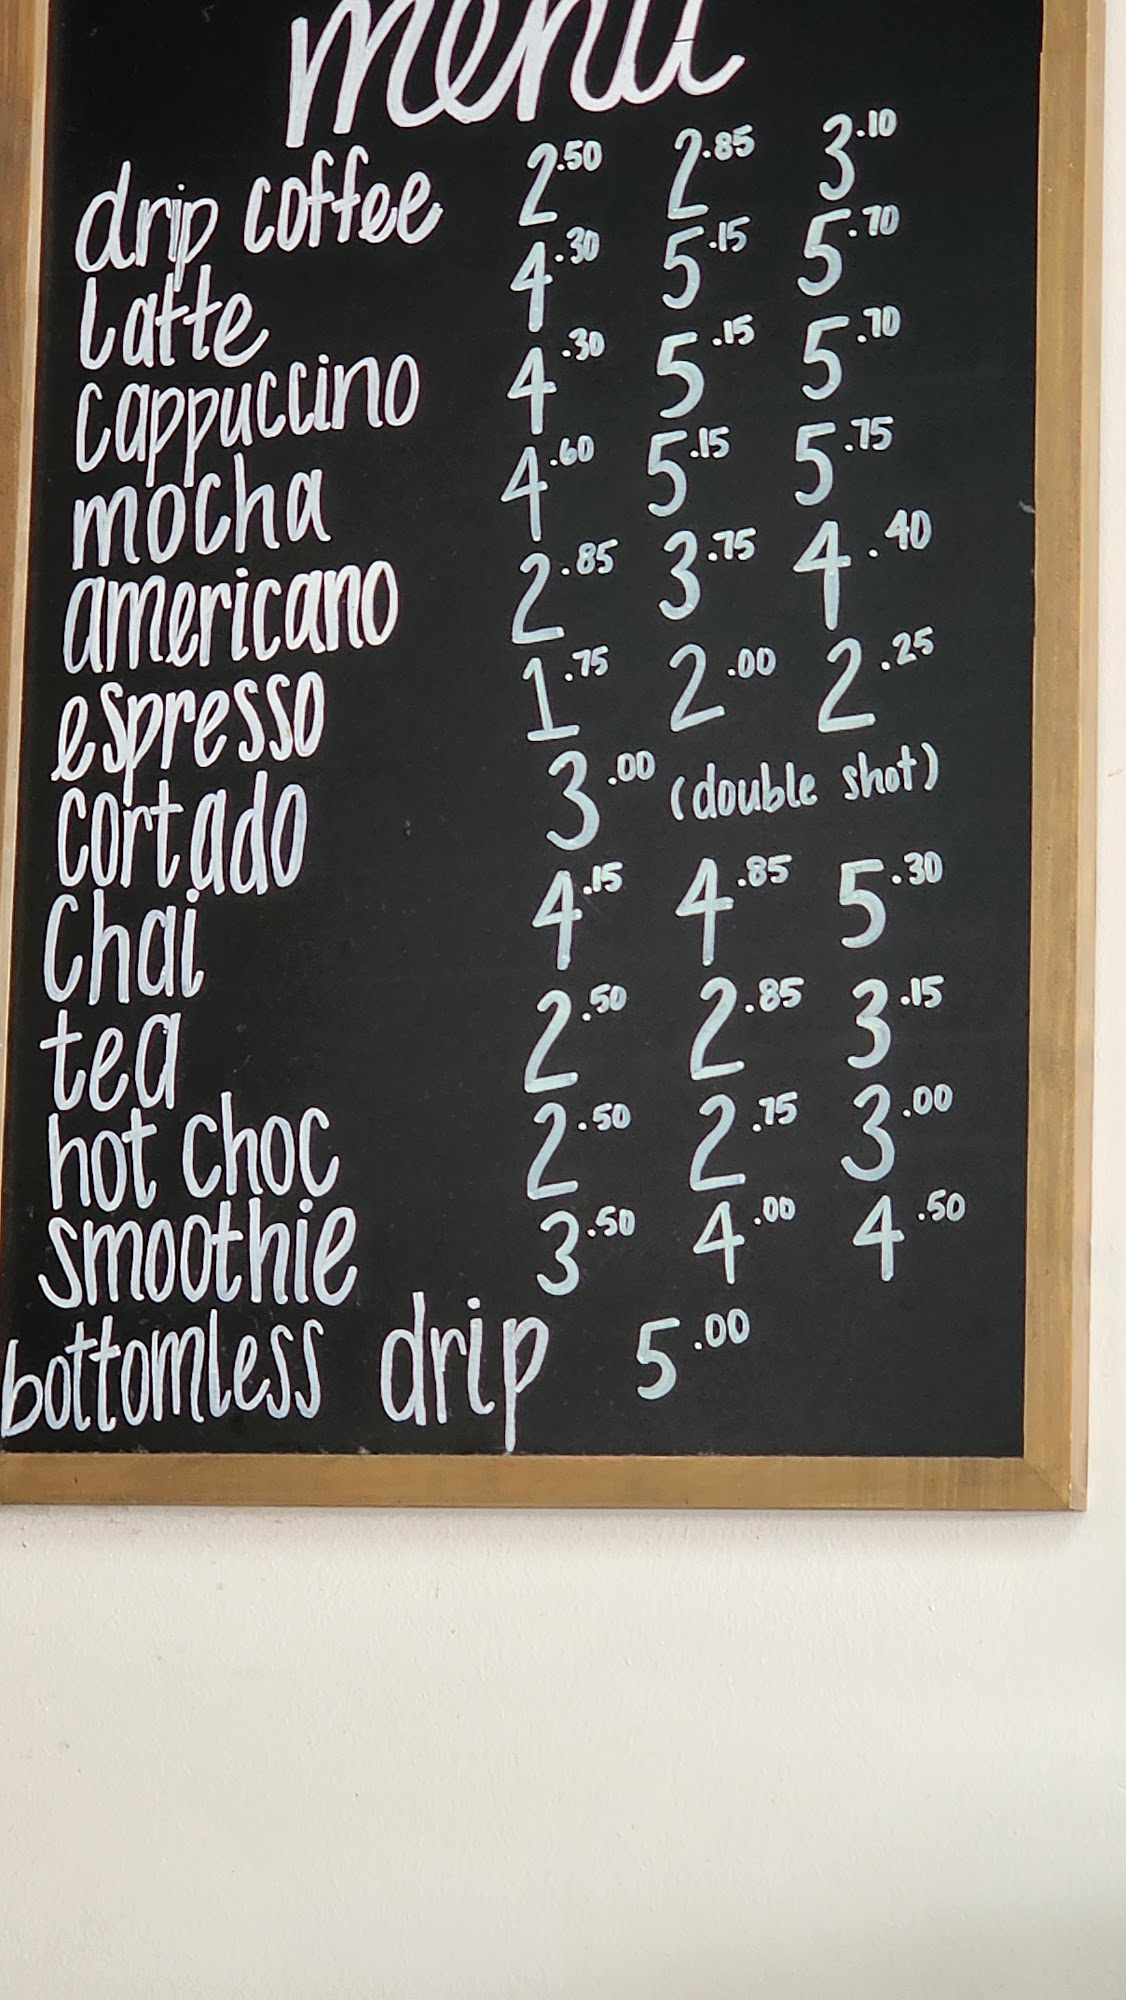 menu
drip coffee 2.50 2.85 3.10
latte 4.30 5.15 5.70
cappuccino 4.30 5.15 5.70
mocha 4.60 5.15 5.75
americano 2.85 3.75 4.40
espresso 1.75 2.00 2.25
cortado 3.00 (double shot)
Chai 4.15 4.85 5.30
tea 2.50 2.85 3.15
hot choc 2.50 2.75 3.00
smoothie 3.50 4.00 4.50
bottomless drip 5.00